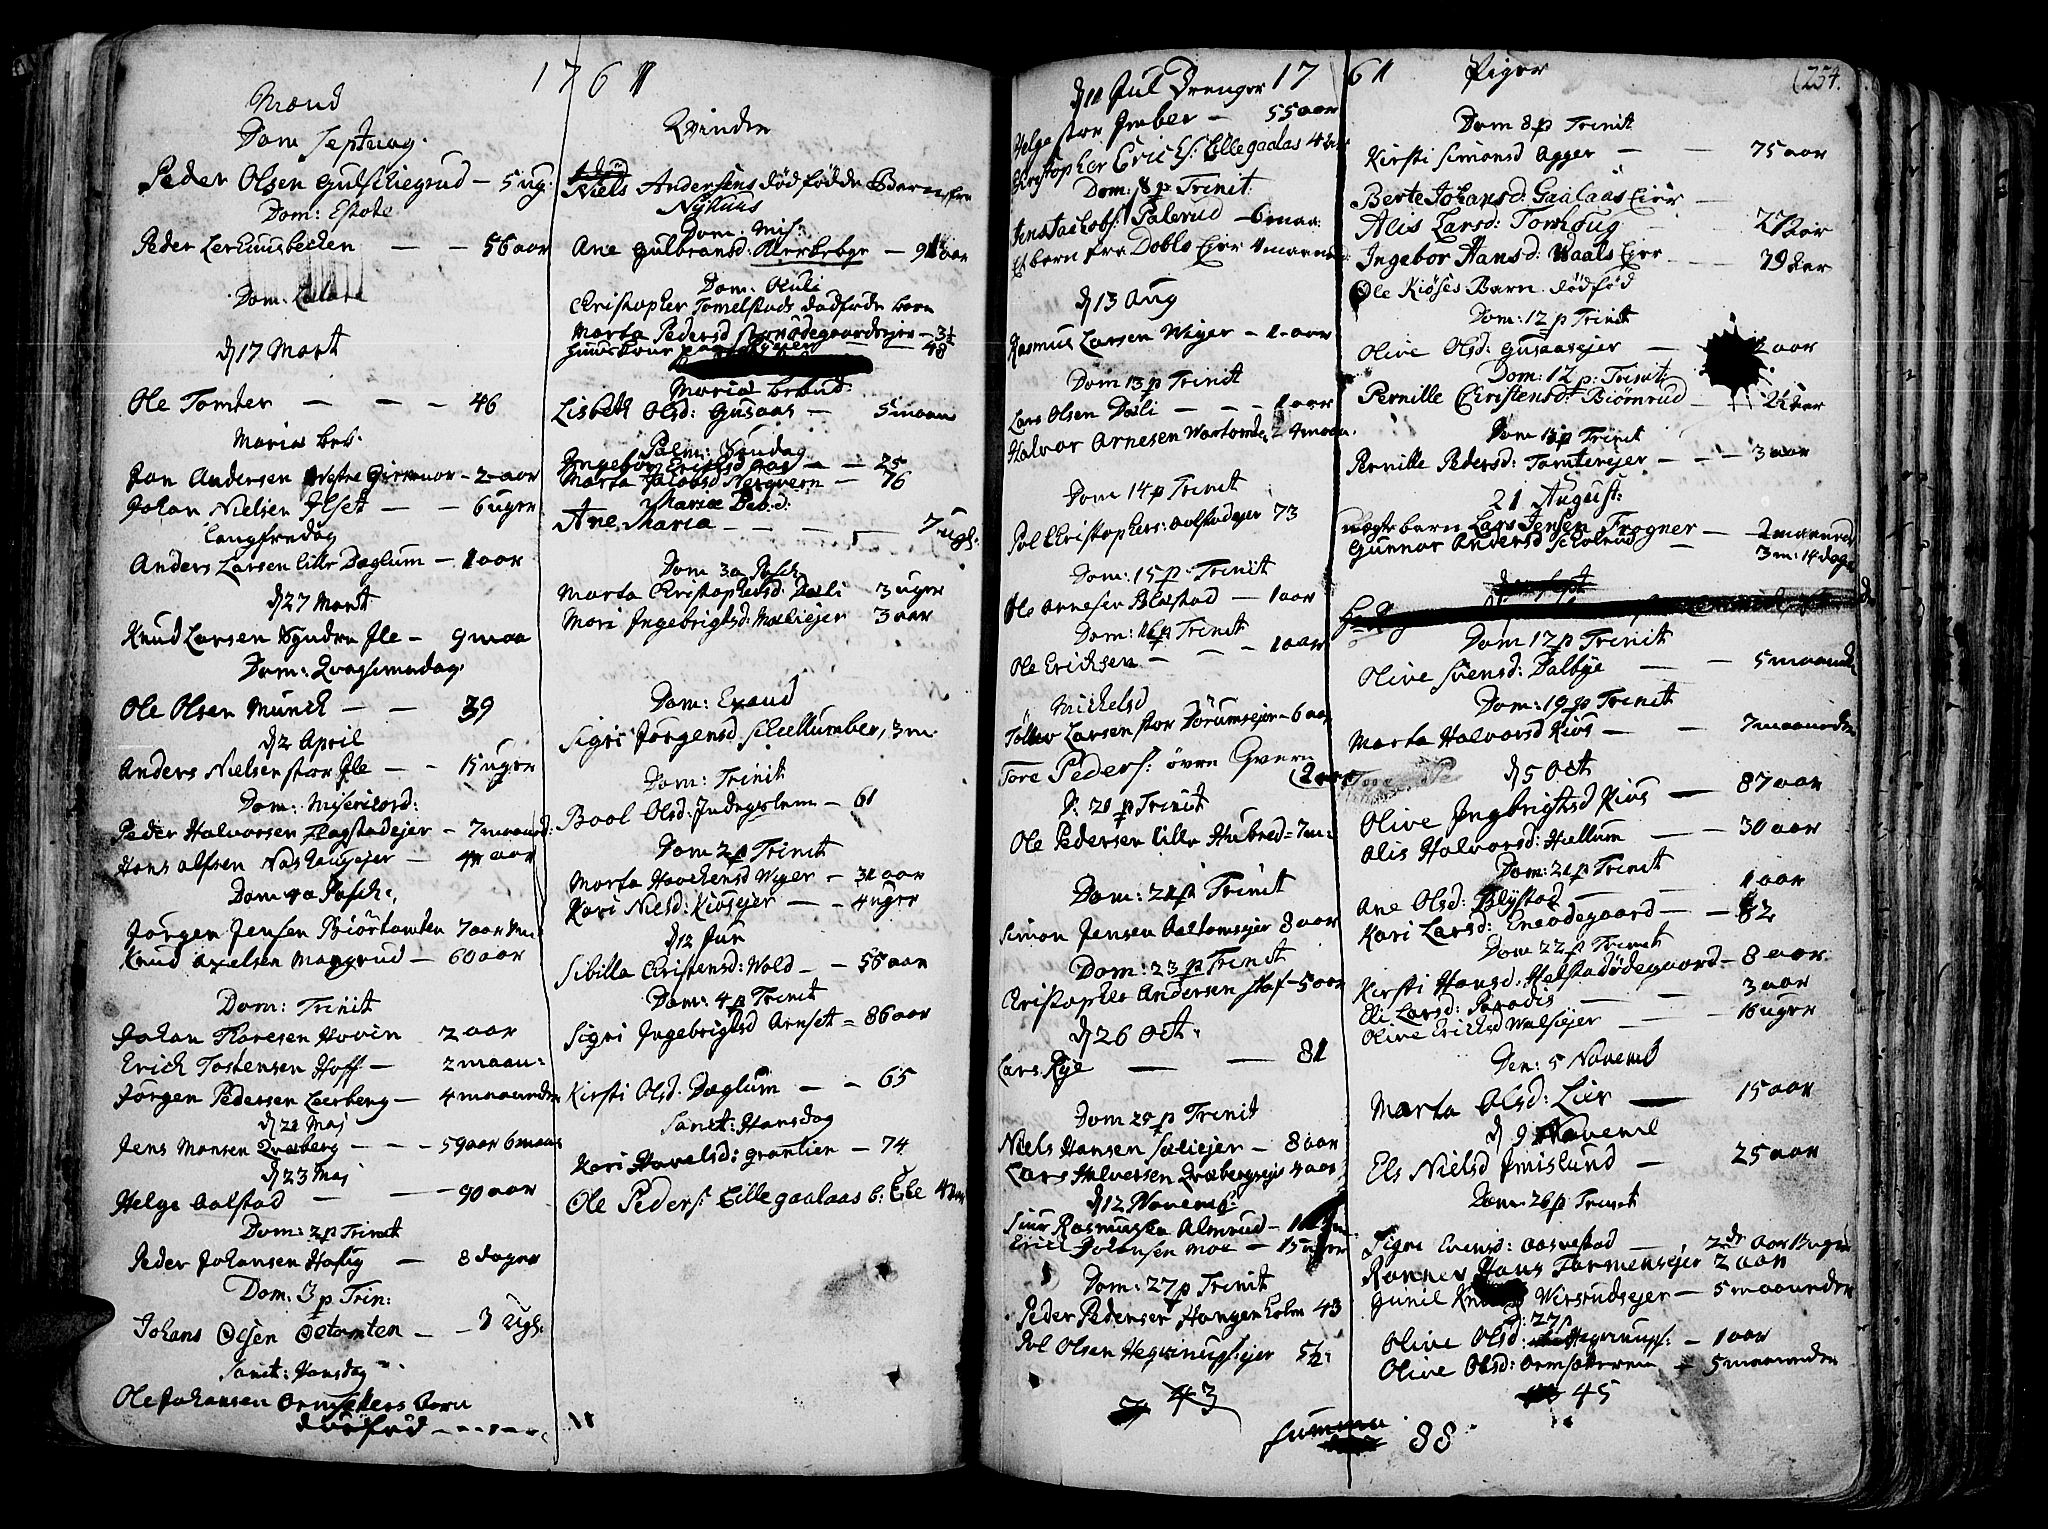 1761
Mænd
Dom Septuag.
Peder Olsen Gulschiegrud – 5 ug.
Dom: Estote
Peder Lerhuusbechen – – 56 aar
Dom. Lætare
d 17 Mart
Ole Tomter – – – 46
Mariæ beb.
Jon Andersen Westre Girenor – 2 aar
Johan Nielsen Ilset – – 6 uger
Langfredag
Anders Larsen lille Dæglum – 1 aar
d 27 Mart
Knud Larsen Syndre Ile – 9 maa
Dom: Qvasimodag
Ole Olsen Munch – – 39
d 2 April
Anders Nielsen stor Ile – – 15 uger
Dom: Misericord:
Peder Halvorsen Flagstadejer – 7 maaned:
Hans Olsen Nashaugejer – 4 aar
Dom 4 a Pasch.
Jørgen Jensen Biørtomten 7 aar
Knud Axelsen Mangrud – 60 aar
Dom: Trinit
Johan Thoresen Hovin 2 aar
Erich Tostensen Hoff – 2 maan:
Jørgen Pedersen Leerberg – 4 maaneden
d 21 Maj
Jens Monsen Qvæberg – – – 59 aar 6 maan
d 23 Maj
Helge Aalstad – – – 90 aar
Dom: 2 p Trinit
Peder Johansen Hafug – 8 dager
Dom: 3 p Trin:
Johans Olsen Oetomten – – 3 Ugl:
Sanct: Hansdag
Ole Johansen Ormseters barn
dødfød – – – –
Qvinder
Niels Andersens dødfødde Barn fra
Nyhuus
Dom. Mis:
Ane Gulbransd: Kerkebye – 91 aar
Dom: Oculi
Christopher Tomelstads dødføde barn
Marta Pedersd – 3 1/2
48
Mariæ bebud:
Lisbeth Olsd: Gusaas – 5 maan
Palm: Søndag
Ingebor Erichsd Aas – – 25
Marta Jacobsd Nergvern – 76
Mariæ Beb.d:
Ane Maria – – – – 7 ugl.
Dom 3 a Pasch
Marta Christophersd: Dæli 3 uger
Mari Ingebrigtsd: Mæliejer 3 aar
Dom: Exaud
Sigri Jørgensd Schellumber, 3 m
Dom: Trinit
Bool Olsd: Indegslem – 61
Dom 2 p Trinit
Marta Haachensd Wiger – 31 aar
Kari Nielsd: Kiøsejer – – 4 uger
d 12 Jun
Sibilla Christensd: Wold – – 55 aar
Dom: 4 p Trinit
Sigri Ingebrigtsd Arnset – 86 aar
Kirsti Olsd: Dæglum – – 65
Sanct: Hansdag
Kari Havelsd: Grønlien – 74
Ole Peders: Lillegaalaas b: Else
d 11 Jul Drenger 1761
Helge stor Imber – 55 aar
Christopher Erics: Lillegaalas
Dom: 8 p Trinit
Jens Jacobs: Palerud – 6 maa:
Et barn fra Doblo Ejer 4 maaned
d 13 Aug
Rasmus Larsen Wiger – 1 aar
Dom 13 p Trinit
Lars Olsen Dæli – – – 1 aar
Halvor Arnesen Wartomte 4 maan.
Dom 14 p Trinit
Pol Christophers: Aalstadejer 73
Dom: 15 p. Trinit
Ole Arnesen Blæstad – 1 aar
Dom: 16 p Trinit
Ole Erichsen – – – 1 aar
Michelsd
Tollev Larsen stor Dørumsejer – 6 aar
Tore Peders: øvre Gvern
D: 20 p Trinit
Ole Pedersen lille Hubred – 7 m:
Dom: 21 p Trinit
Simon Jensen Aaltomsejer 8 aar
Dom: 23 p Trinit
Christopher Andersen Hof – 5 aar
d 26 Oct:
Lars Rye – – 81
Dom 25 p Trinit
Niels Hansen Sæliejer – 8 aar
Lars Halversen Qvæbergsejer 4 aar
d 12 Novemb:
Siur Rasmussen Almrud –
Erich Johansen Moe – 15 uger
Dom: 27 p Trinit
Peder Pedersen Hangenholm 43
Pol Olsen Hegvinupsejer 5 1/2:
43
Summa 88
Piger
(254.
Dom 8 p Trinit
Kirsti Simonsd Agger – – 75 aar
Berte Johansd: Gaalaas Ejer –
Alis Larsd: Tomhoug – 27 aar
Ingebor Hansd: Waals Ejer – 79
Ole Kiøses Barn dødfød
Dom: 12 p Trinit
Olive Olsd: Gusaasejer – aar
Dom: 12 p: Trinit
Pernille Christensd: Biørnrud
Dom 13 p Trinit
Pernille Pedersd: Tomterejer – – – 3 aar
21 August:
barn Lars Jensen Frogner – 2 maaned
Gunnor Andersd Scholrud – 3 m: 14 dage
Dom 17 p Trinit
Olive Svensd: Dalbye – – 5 maand
Dom: 19 p Trinit
Marta Halvorsd Kiøs – – 7 maaneden
d 5 Oct
Olive Ingbrigtsd Kiøs – 87 aar
Alis Halvorsd: Hallum – – 30 aar
Dom: 21 p Trinit
Ane Olsd: Blystad – – 1 aar
Kari Larsd: Eneødegaard – – 82
Dom 22 p Trinit
Kirsti Hansd. Helstadødegaard – 8 aar.
Eli Larsd: Paradis – – 3 aar
Olive Erichsd Walsejer – – 16 uger
Den: 5 Novemb
Marta Olsd: Lier – 15 aar
d 9 Novembl
Els Nielsd Imislund – 25 aar
Dom: 26 p Trinit
Sigri Evensd: Aasvestad –
Rønnev Hans Formensejer 2 aar
Gunil Wersrudsejer – 5 maaneden
D: 27 p
Olive Olsd: Hegvinups: – 1 aar
Olive Olsd: Ormsæteren – 5 maaneden
45